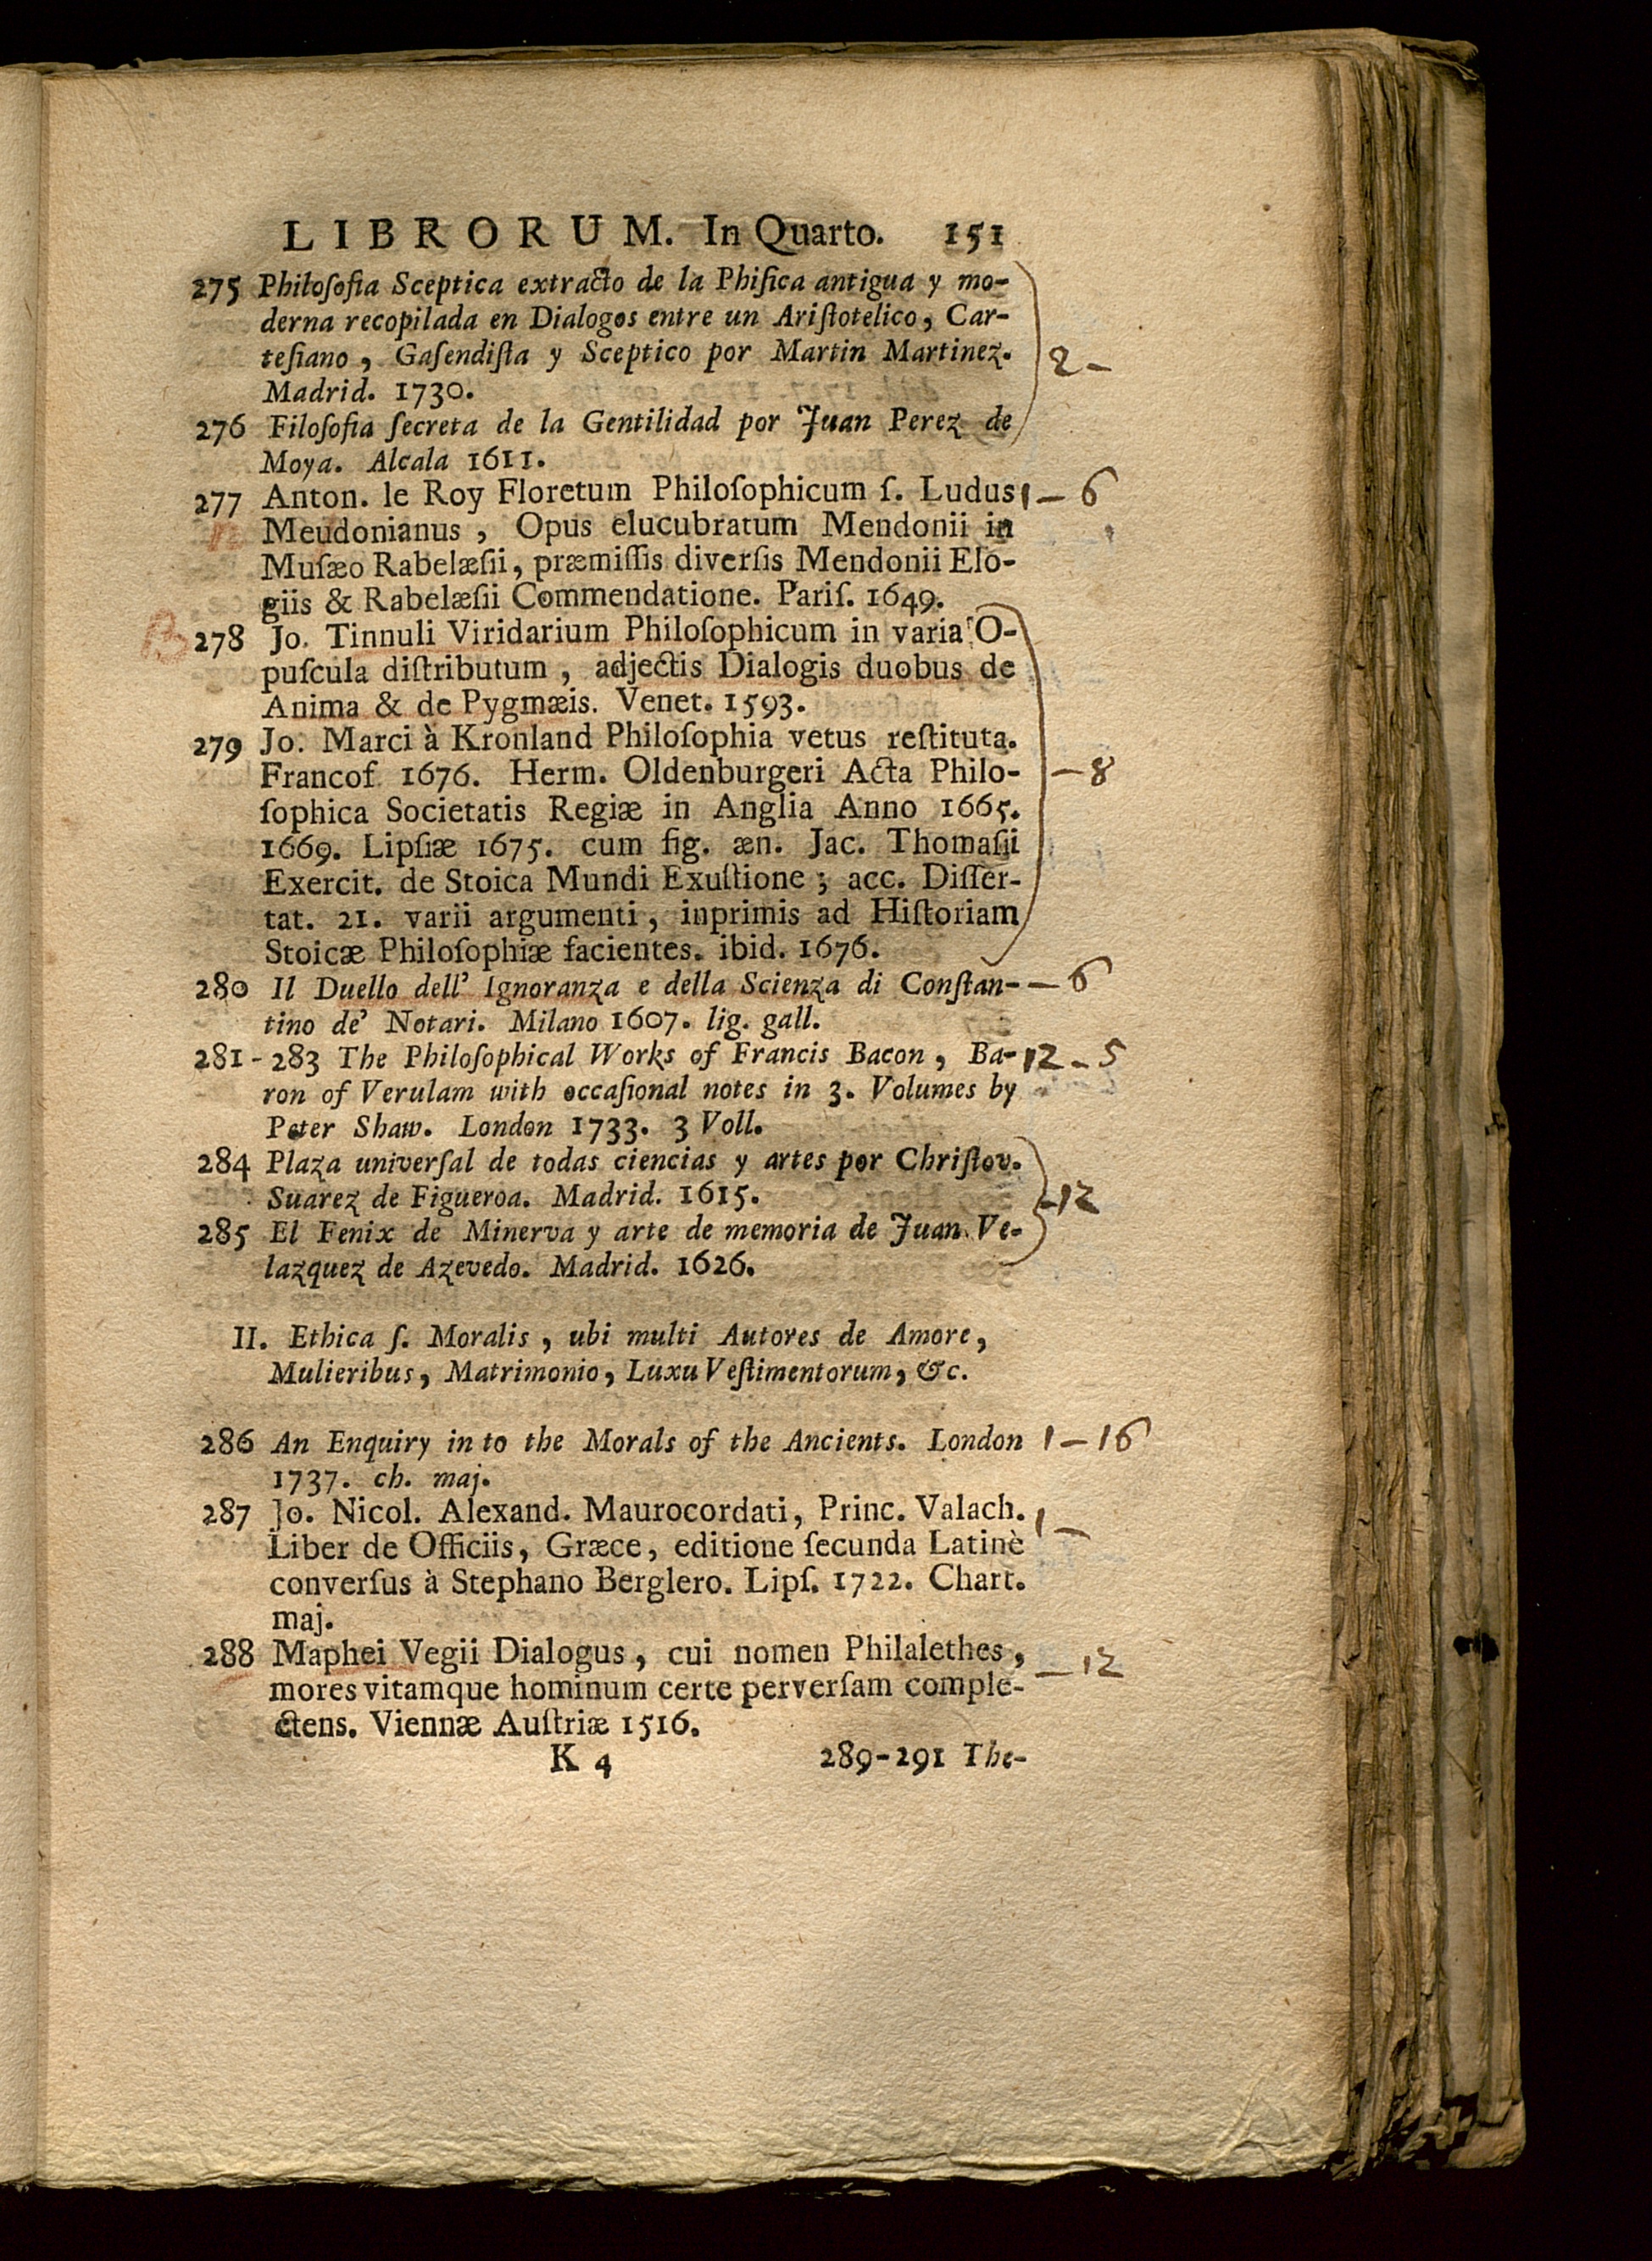 LIBRORUM. In Quarto. 151
275 Philoſofia Sceptica extracto de la Phiſica antigua y mo-
derna recopilada en Dialogos entre un Ariſtotelico, Car-
teſiano, Gaſendiſta y Sceptico por Martin Martinez.
2-
Madrid. 1730.
276 Filoſofia ſecreta de la Gentilidad por Juan Perez de
Moya. Alcala 1611.
277 Anton. le Roy Floretum Philoſophicum ſ. Ludus 1-6
Meudonianus, Opus elucubratum Mendonii in
Muſæo Rabelæſii, præmiſſis diverſis Mendonii Elo-
giis & Rabelæſii Commendatione. Pariſ. 1649.
B 278 Jo. Tinnuli Viridarium Philoſophicum in varia O-
puſcula diſtributum, adjectis Dialogis duobus de
Anima & de Pygmæis. Venet. 1593.
279 Jo. Marci à Kronland Philoſophia vetus reſtituta.
Francof. 1676. Herm. Oldenburgeri Acta Philo- -8
ſophica Societatis Regiæ in Anglia Anno 1665.
1669. Lipſiæ 1675. cum fig. æn. Jac. Thomaſii
Exercit. de Stoica Mundi Exuſtione; acc. Diſſer-
tat. 21. varii argumenti, inprimis ad Hiſtoriam
Stoicæ Philoſophiæ facientes. ibid. 1676.
280 Il Duello dell' Ignoranza e della Scienza di Conſtan- -6
tino de' Notari. Milano 1607. lig. gall.
281-283 The Philoſophical Works of Francis Bacon, Ba- 12-5
ron of Verulam with occaſional notes in 3. Volumes by
Peter Shaw. London 1733. 3 Voll.
284 Plaza univerſal de todas ciencias y artes por Chriſtov.
Suarez de Figueroa. Madrid. 1615. -12
285 El Fenix de Minerva y arte de memoria de Juan Ve-
lazquez de Azevedo. Madrid. 1626.
II. Ethica ſ. Moralis, ubi multi Autores de Amore,
Mulieribus, Matrimonio, Luxu Veſtimentorum, &c.
286 An Enquiry in to the Morals of the Ancients. London 1-16
1737. ch. maj.
287 Jo. Nicol. Alexand. Maurocordati, Princ. Valach. 1-
Liber de Officiis, Græce, editione ſecunda Latinè
converſus à Stephano Berglero. Lipſ. 1722. Chart.
maj.
288 Maphei Vegii Dialogus, cui nomen Philalethes, -12
mores vitamque hominum certe perverſam comple-
ctens. Viennæ Auſtriæ 1516.
K 4 289-291 The-